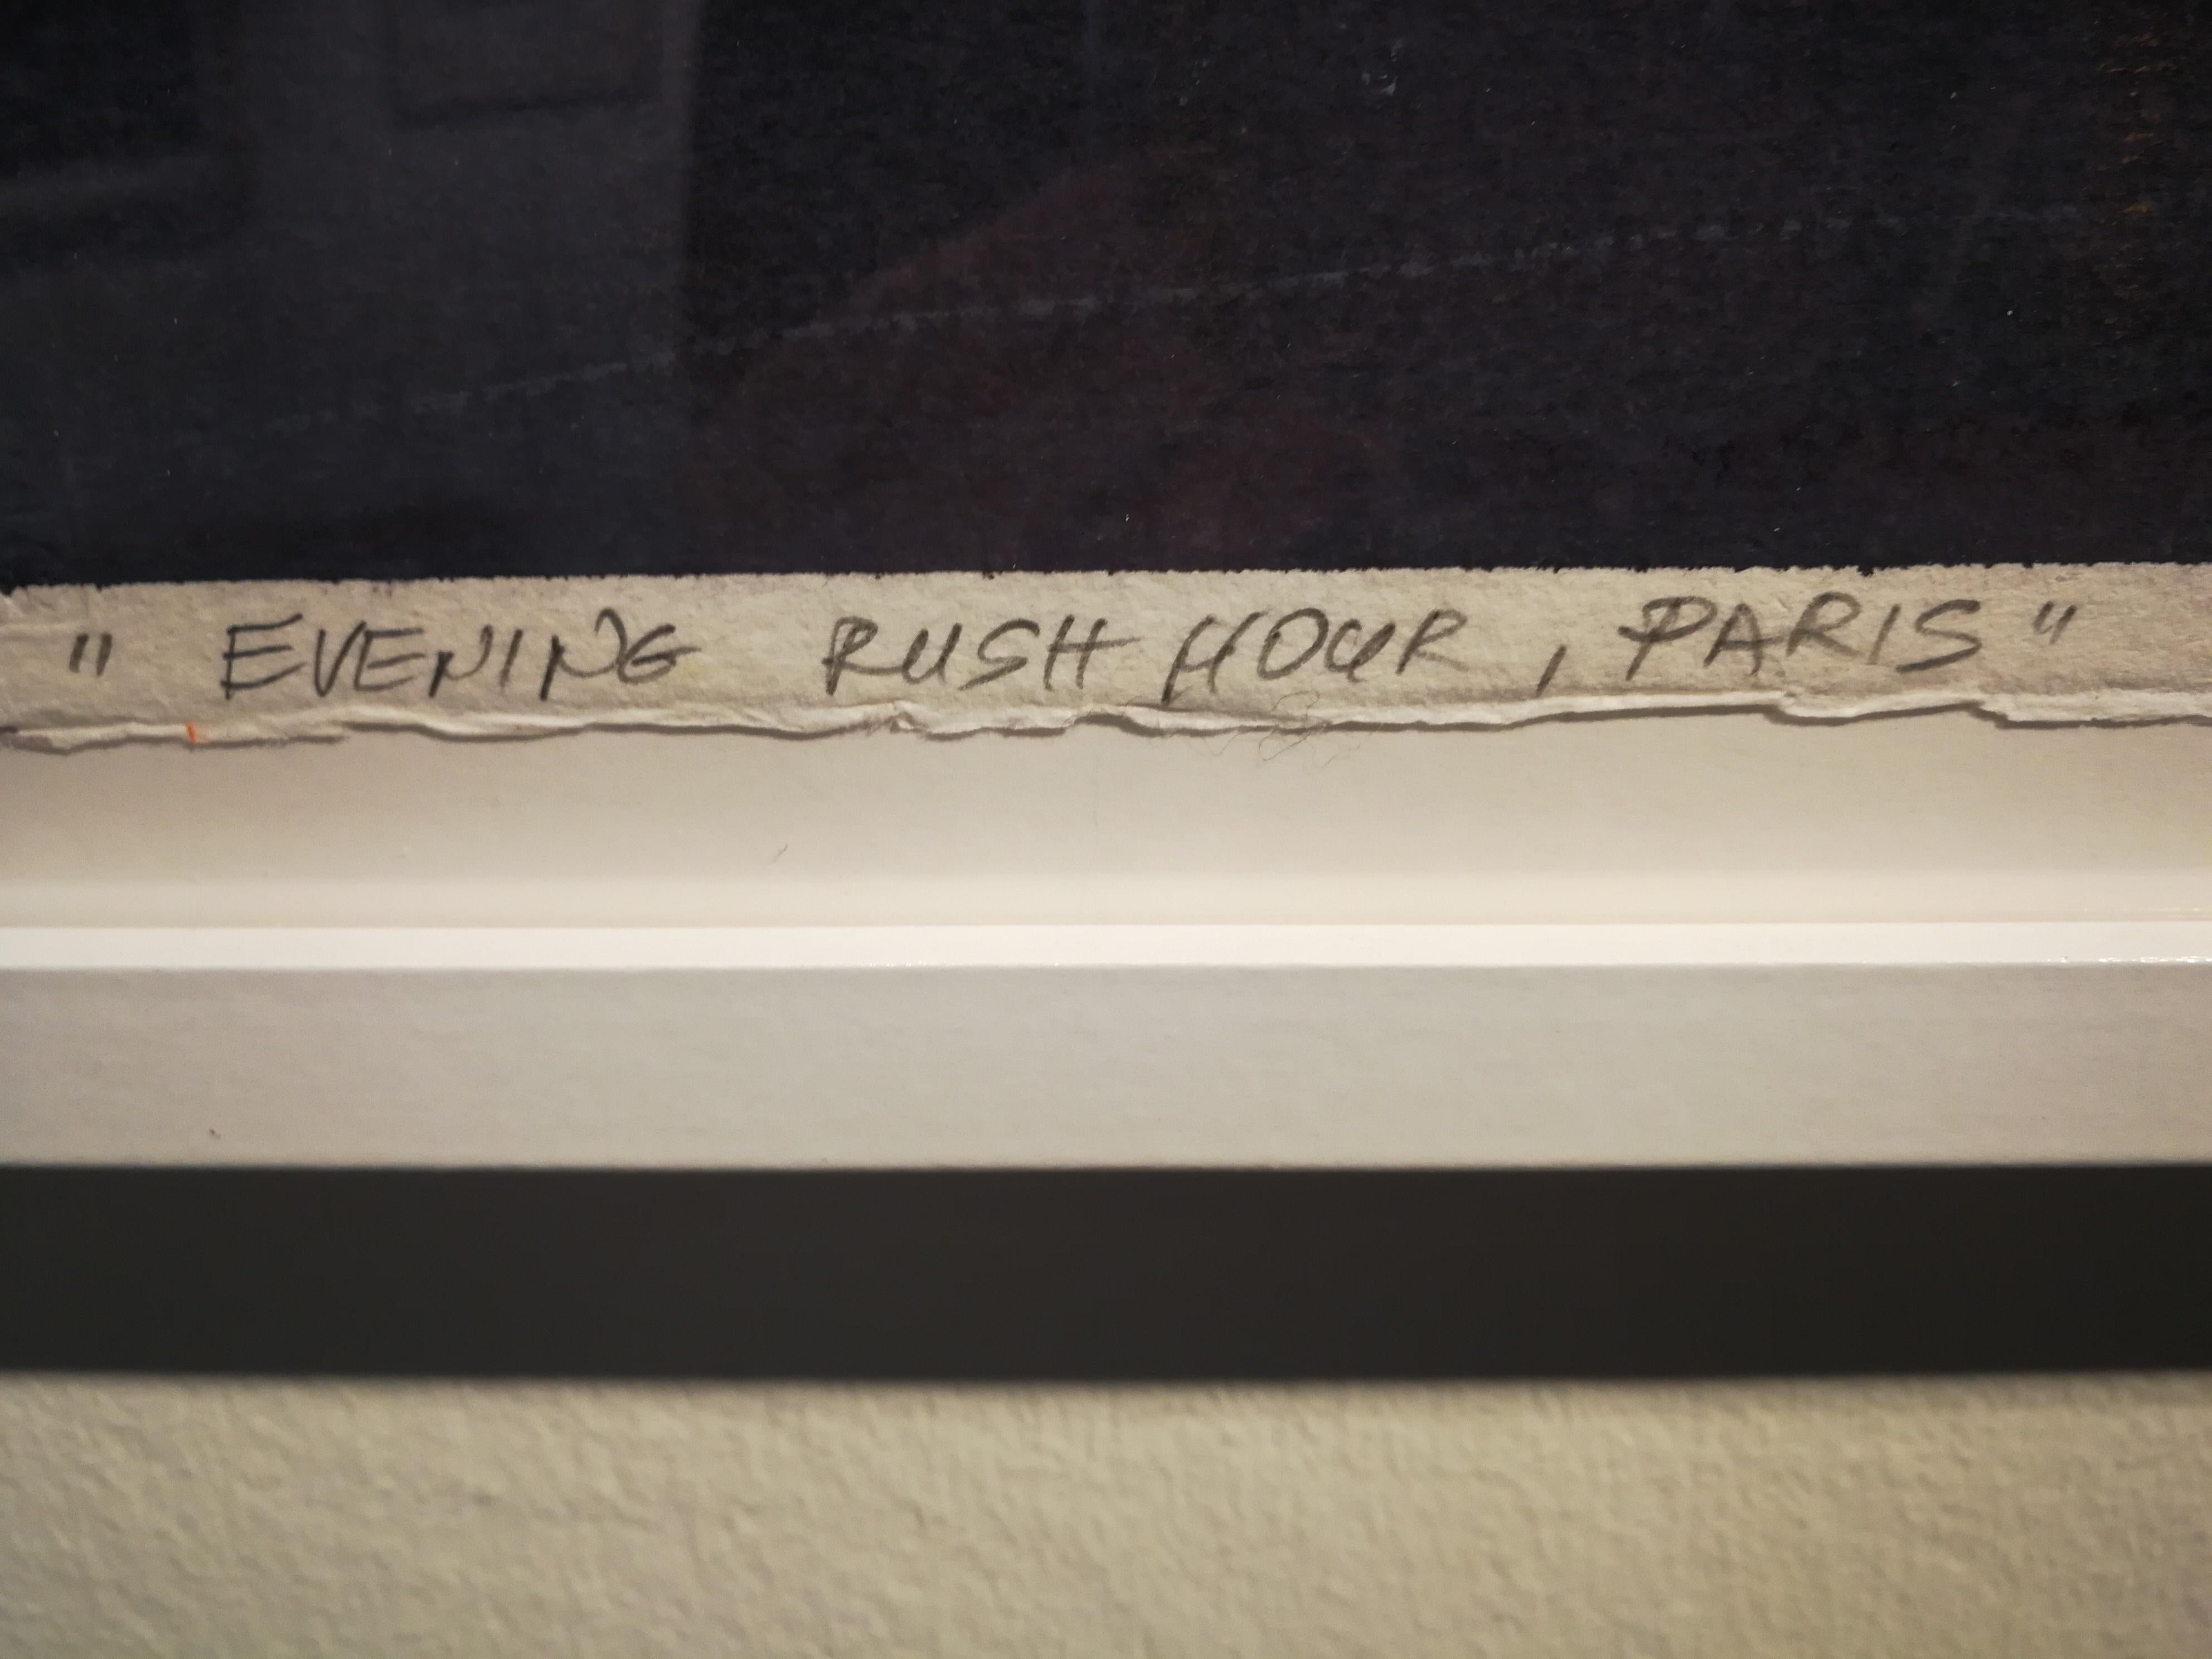 " EVENING RUSH HOUR, PARIS "